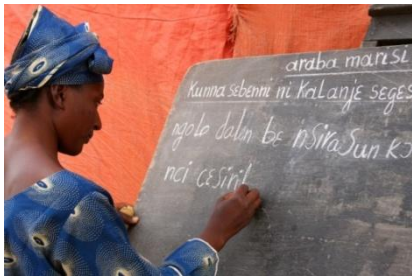 araba marisi
kunna sebenni ni kalanje seges
ngolo dalen bɛ nsirasun kɔ
nci cɛsiril